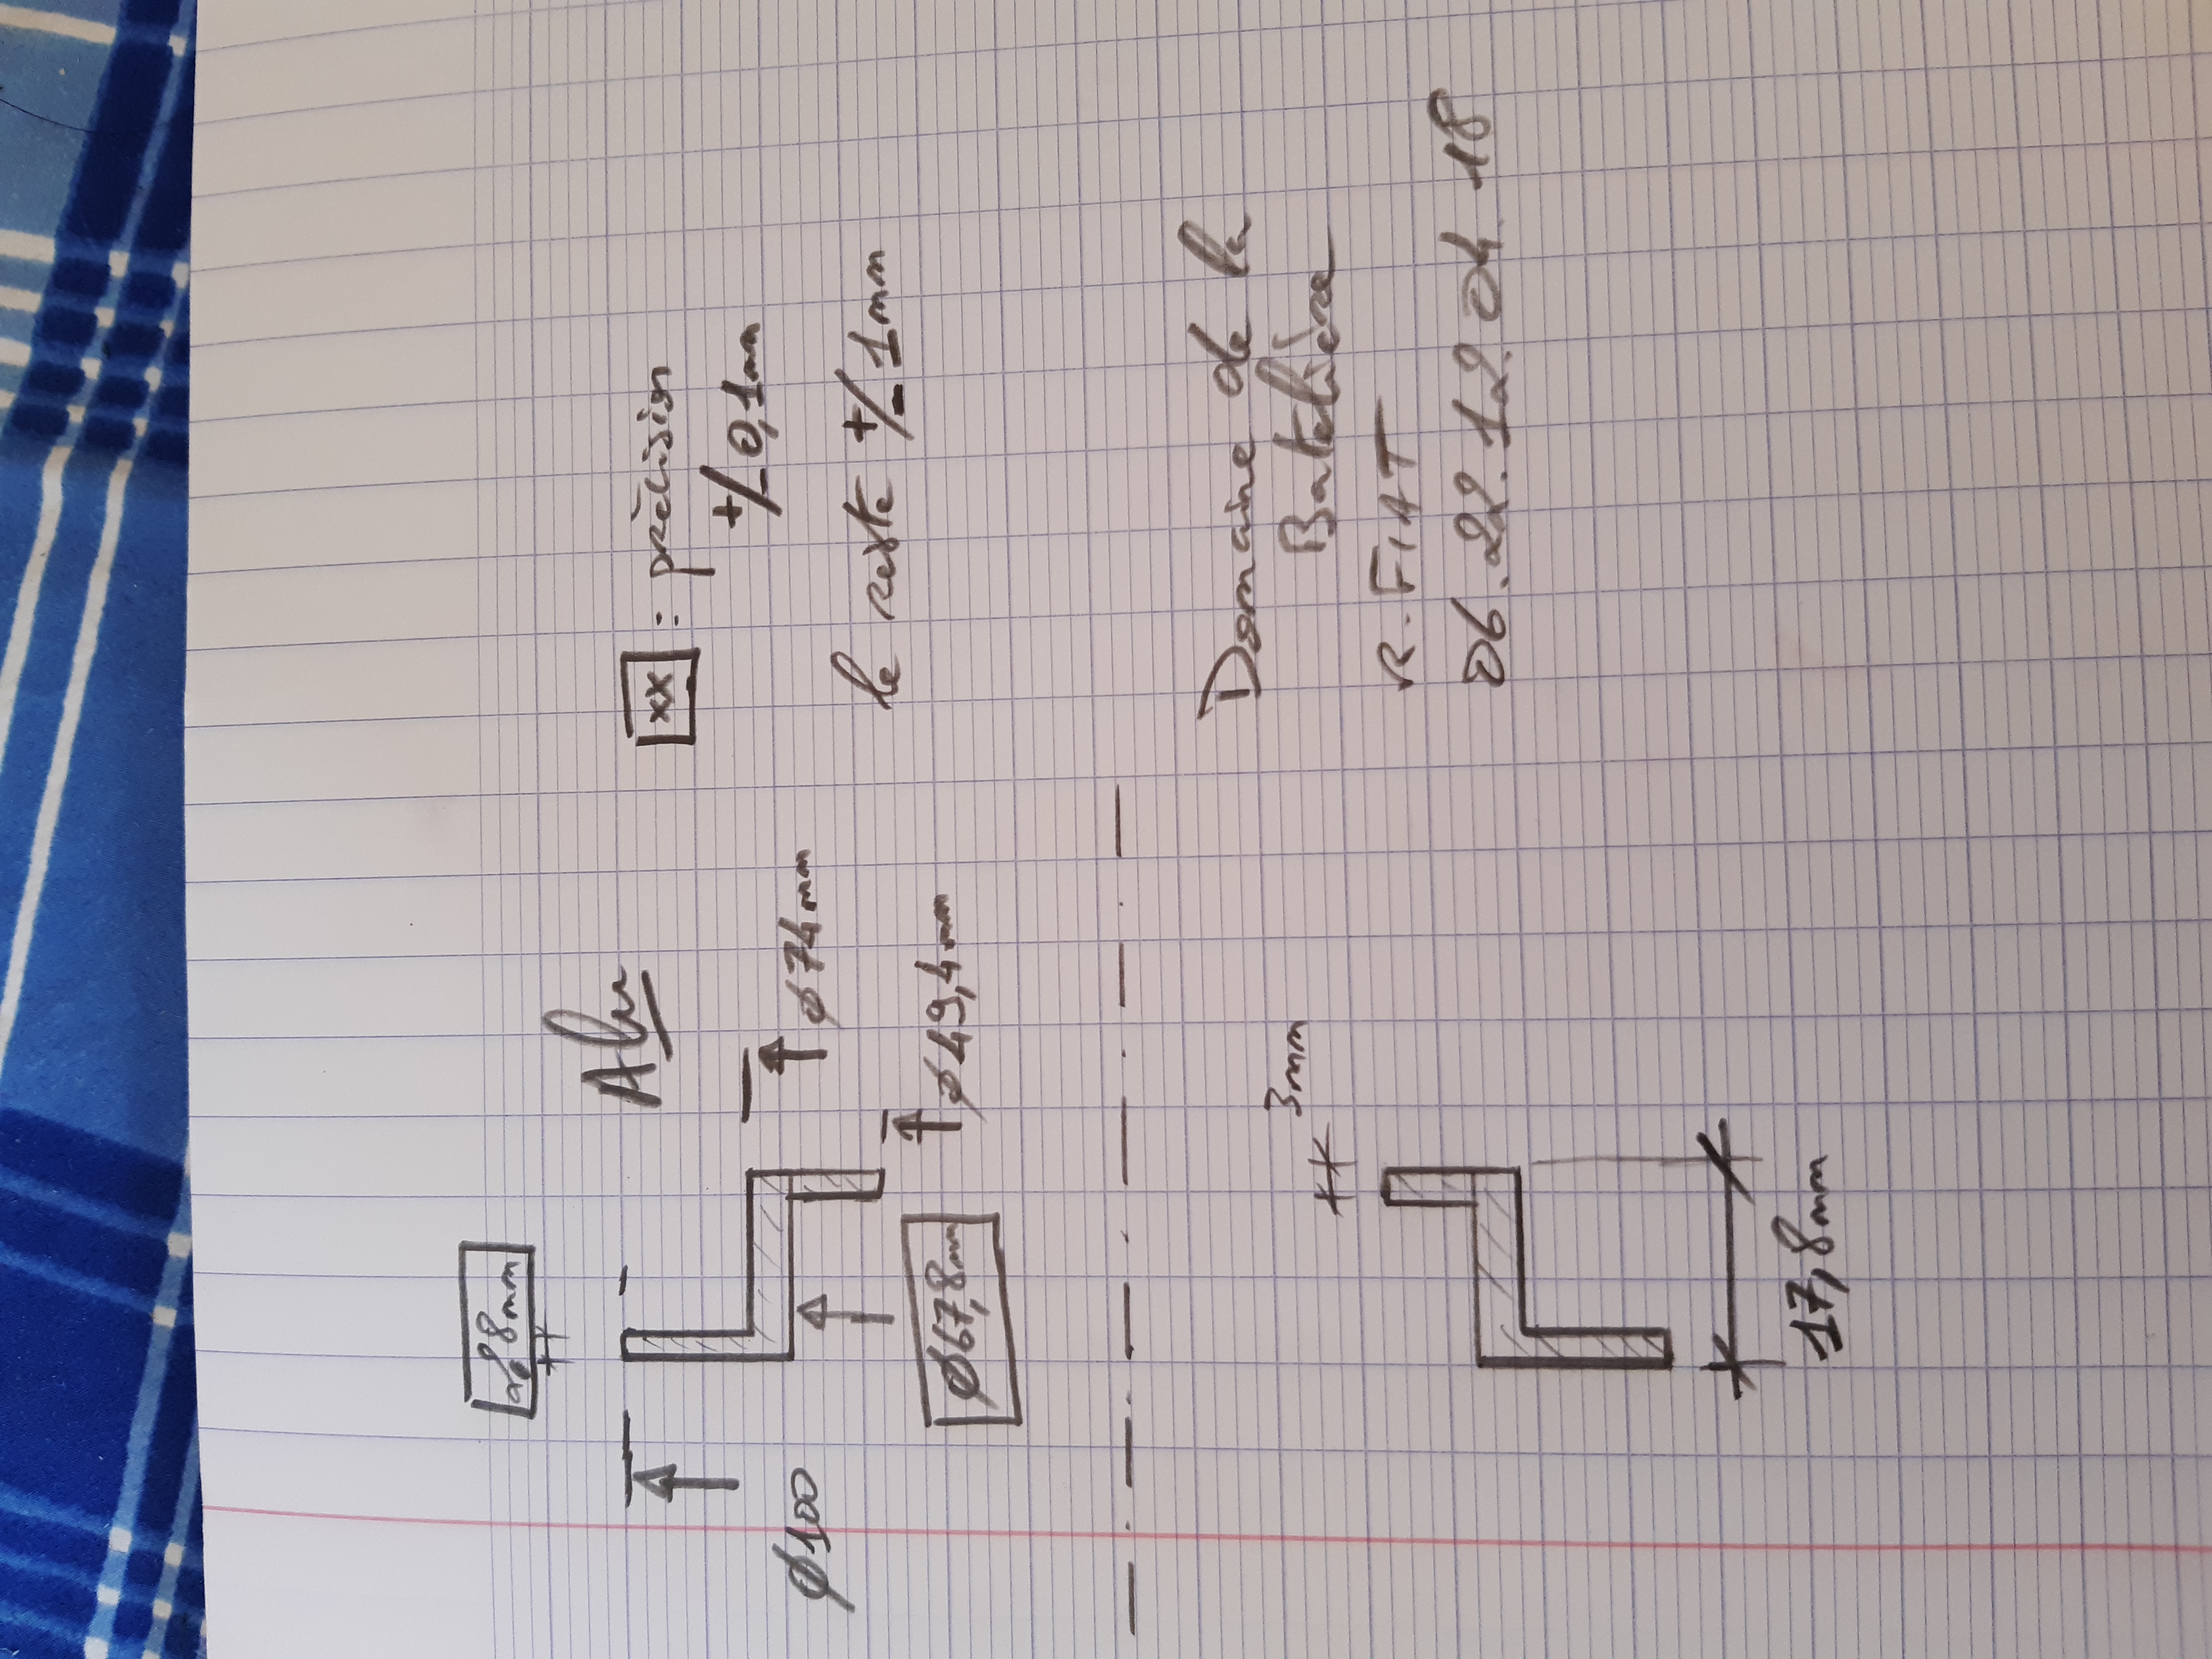 2,8mm
Alu
Ø100
Ø74mm
Ø49,4mm
Ø67,8mm
3mm
17,8mm
xx : précision
+/- 0,1mm
le reste +/- 1mm
Domaine de la
Batelière
R. FIAT
06.22.12.04.18